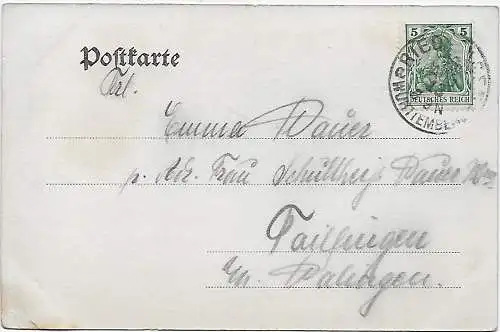 Postkarte
5 5
DEUTSCHES REICH
WÜRTTEMBERG
Frl.
Emma Dauer
p. Adr. Frau Schultheiß Dauer
Tailfingen
Balingen.